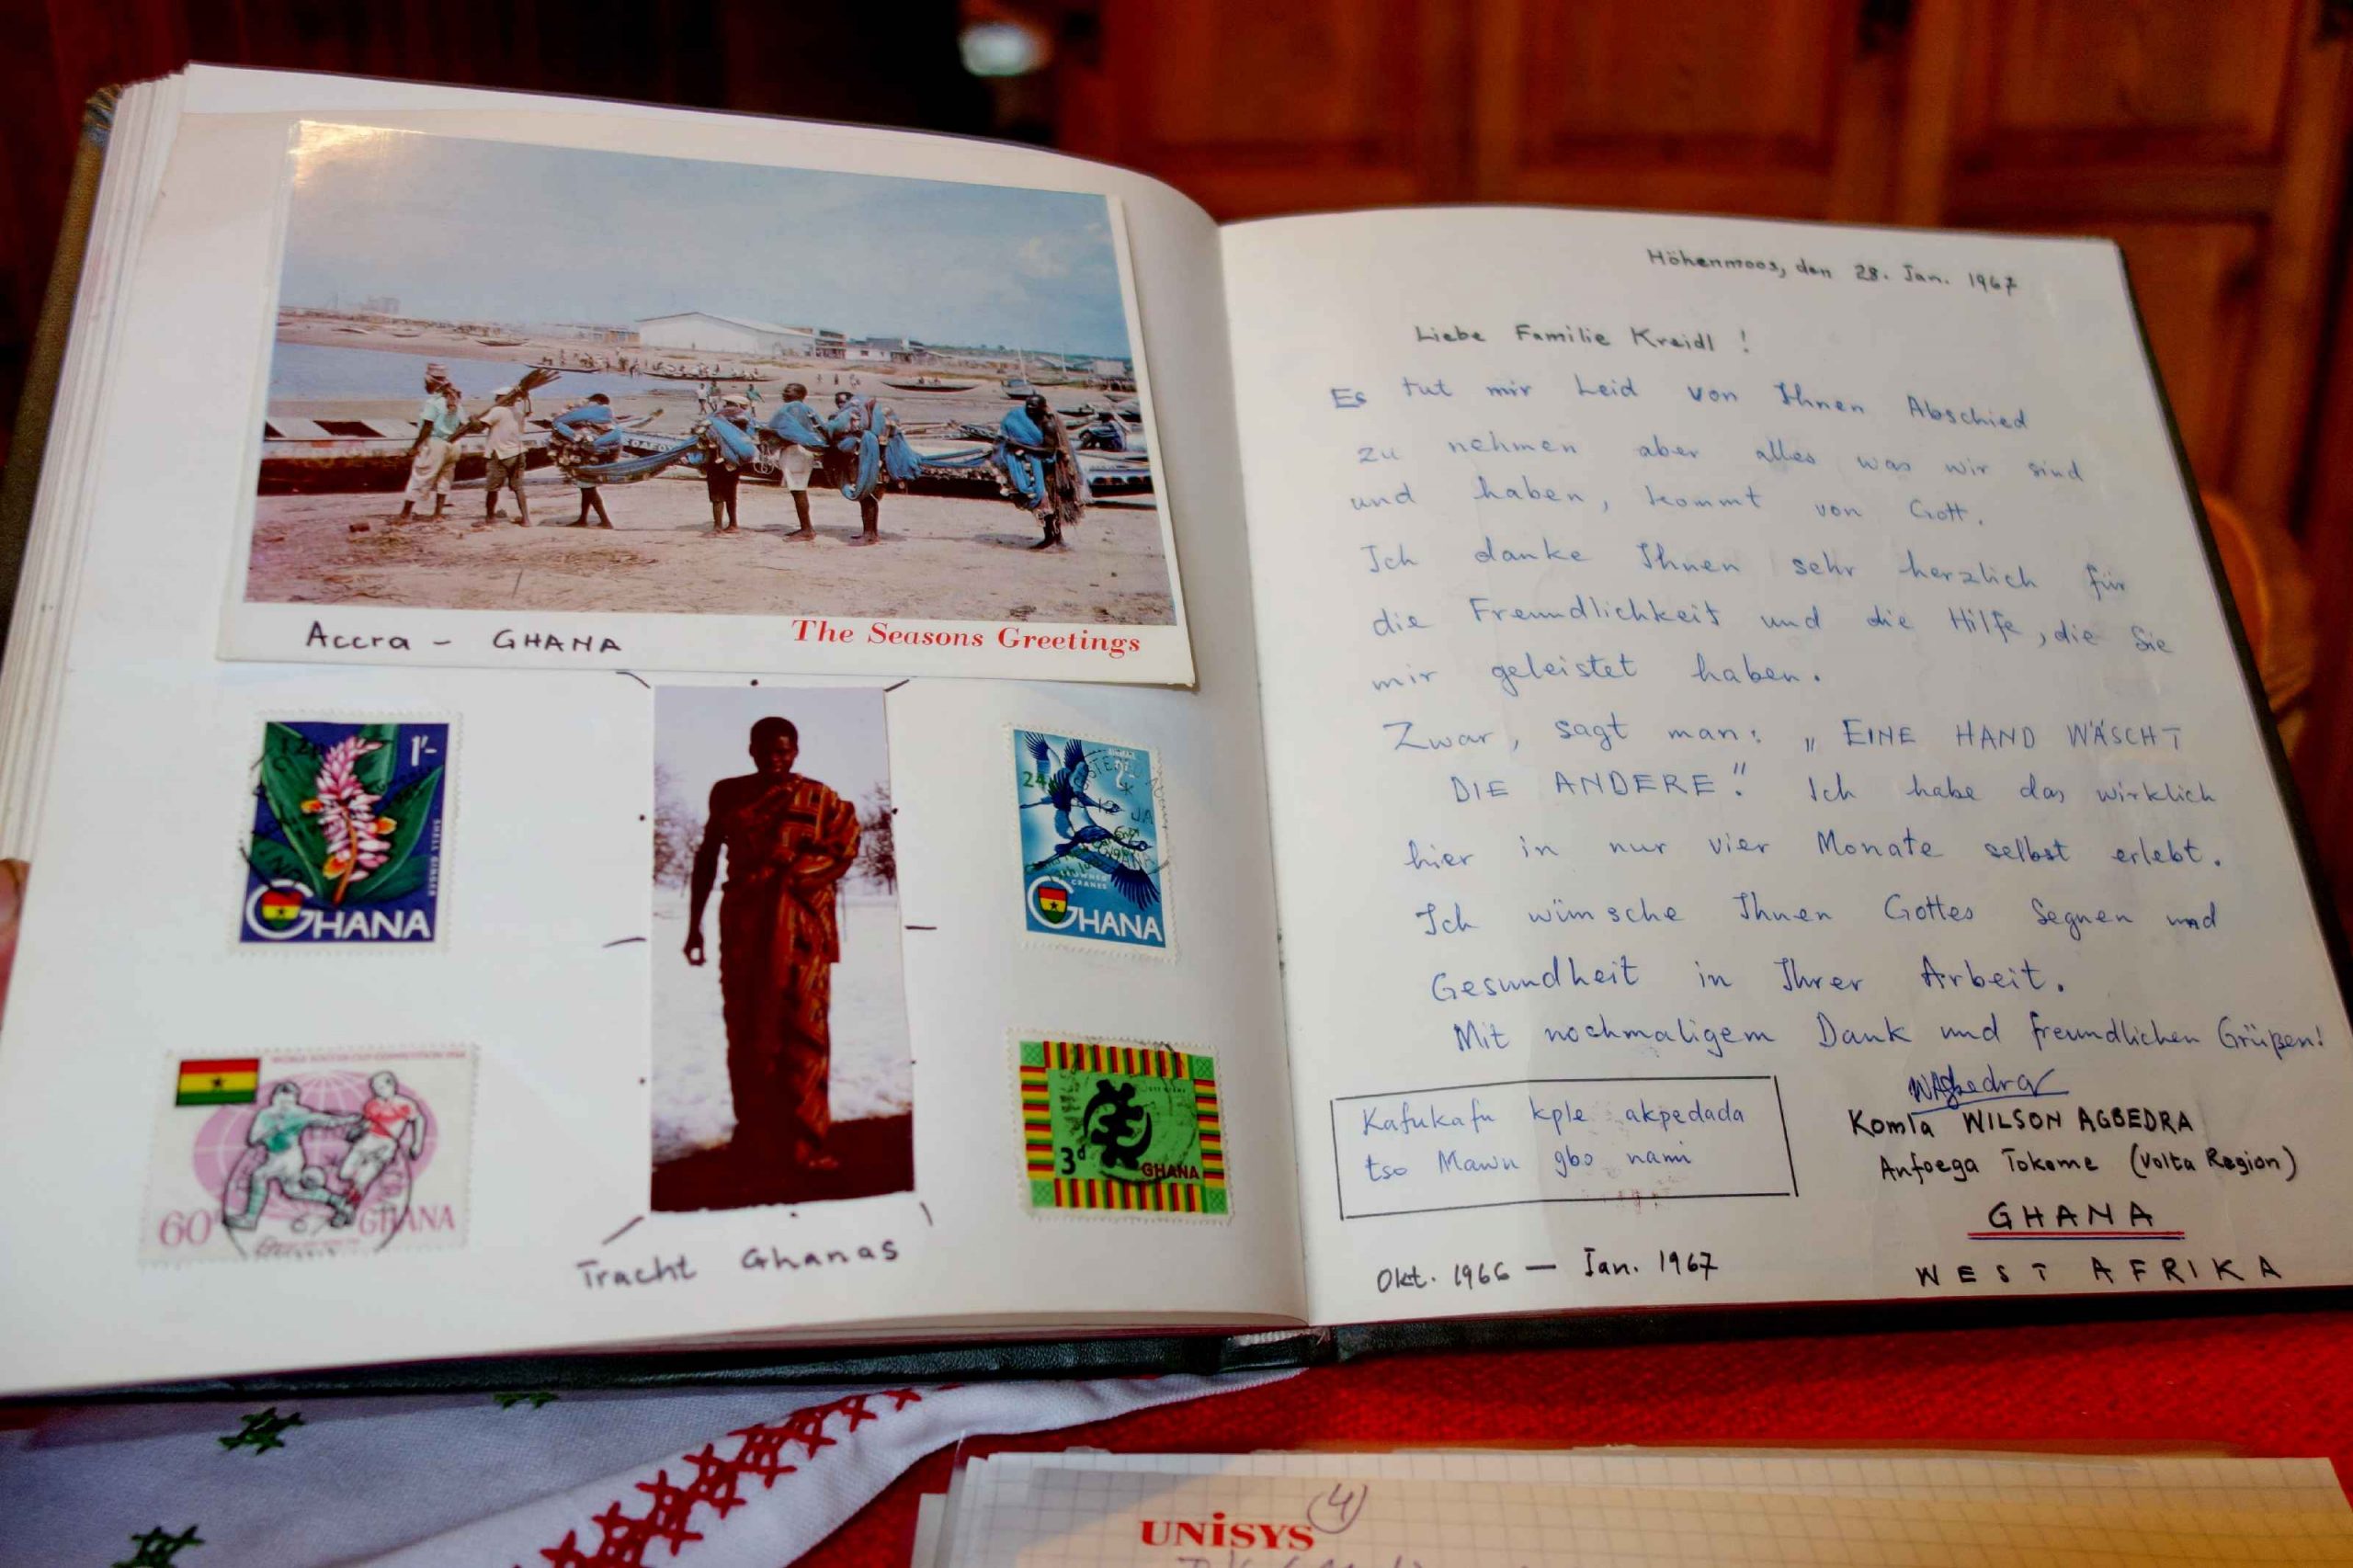 Accra - GHANA
The Seasons Greetings
1'-
SHELL GINGER
GHANA
GHANA
WORLD SOCCER CUP COMPETITION 1966
60
GHANA
3d
GHANA
Tracht Ghanas
Höhenmoos, den 28. Jan. 1967
Liebe Familie Kreidl !
Es tut mir Leid von Ihnen Abschied
zu nehmen aber alles was wir sind
und haben, kommt von Gott.
Ich danke Ihnen sehr herzlich für
die Freundlichkeit und die Hilfe, die Sie
mir geleistet haben.
Zwar, sagt man: „EINE HAND WÄSCHT
DIE ANDERE." Ich habe das wirklich
hier in nur vier Monate selbst erlebt.
Ich wünsche Ihnen Gottes Segnen und
Gesundheit in Ihrer Arbeit.
Mit nochmaligem Dank und freundlichen Grüßen!
WAgbedra
Komla WILSON AGBEDRA
Anfoega Tokome (Volta Region)
GHANA
WEST AFRIKA
Kafukafu kple akpedada
tso Mawu gbo nami
Okt. 1966 — Jan. 1967
UNISYS
4